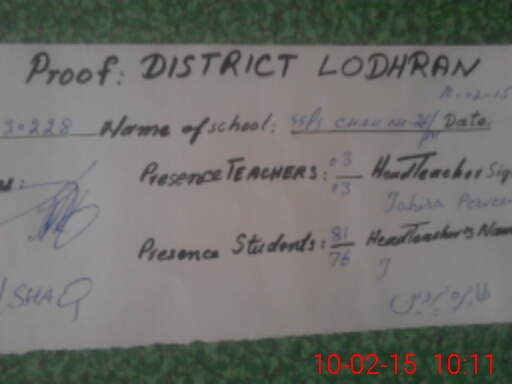 Proof: DISTRICT LODHRAN
10-02-15
30228 Name of school: GGPS CHAK Date:
Presence TEACHERS: 03/03 Head Teacher Sig
Tahira Perveen
Presence Students: 81/76 Head Teacher's Name
طاہرہ پروین
ISHAQ
10-02-15 10:11